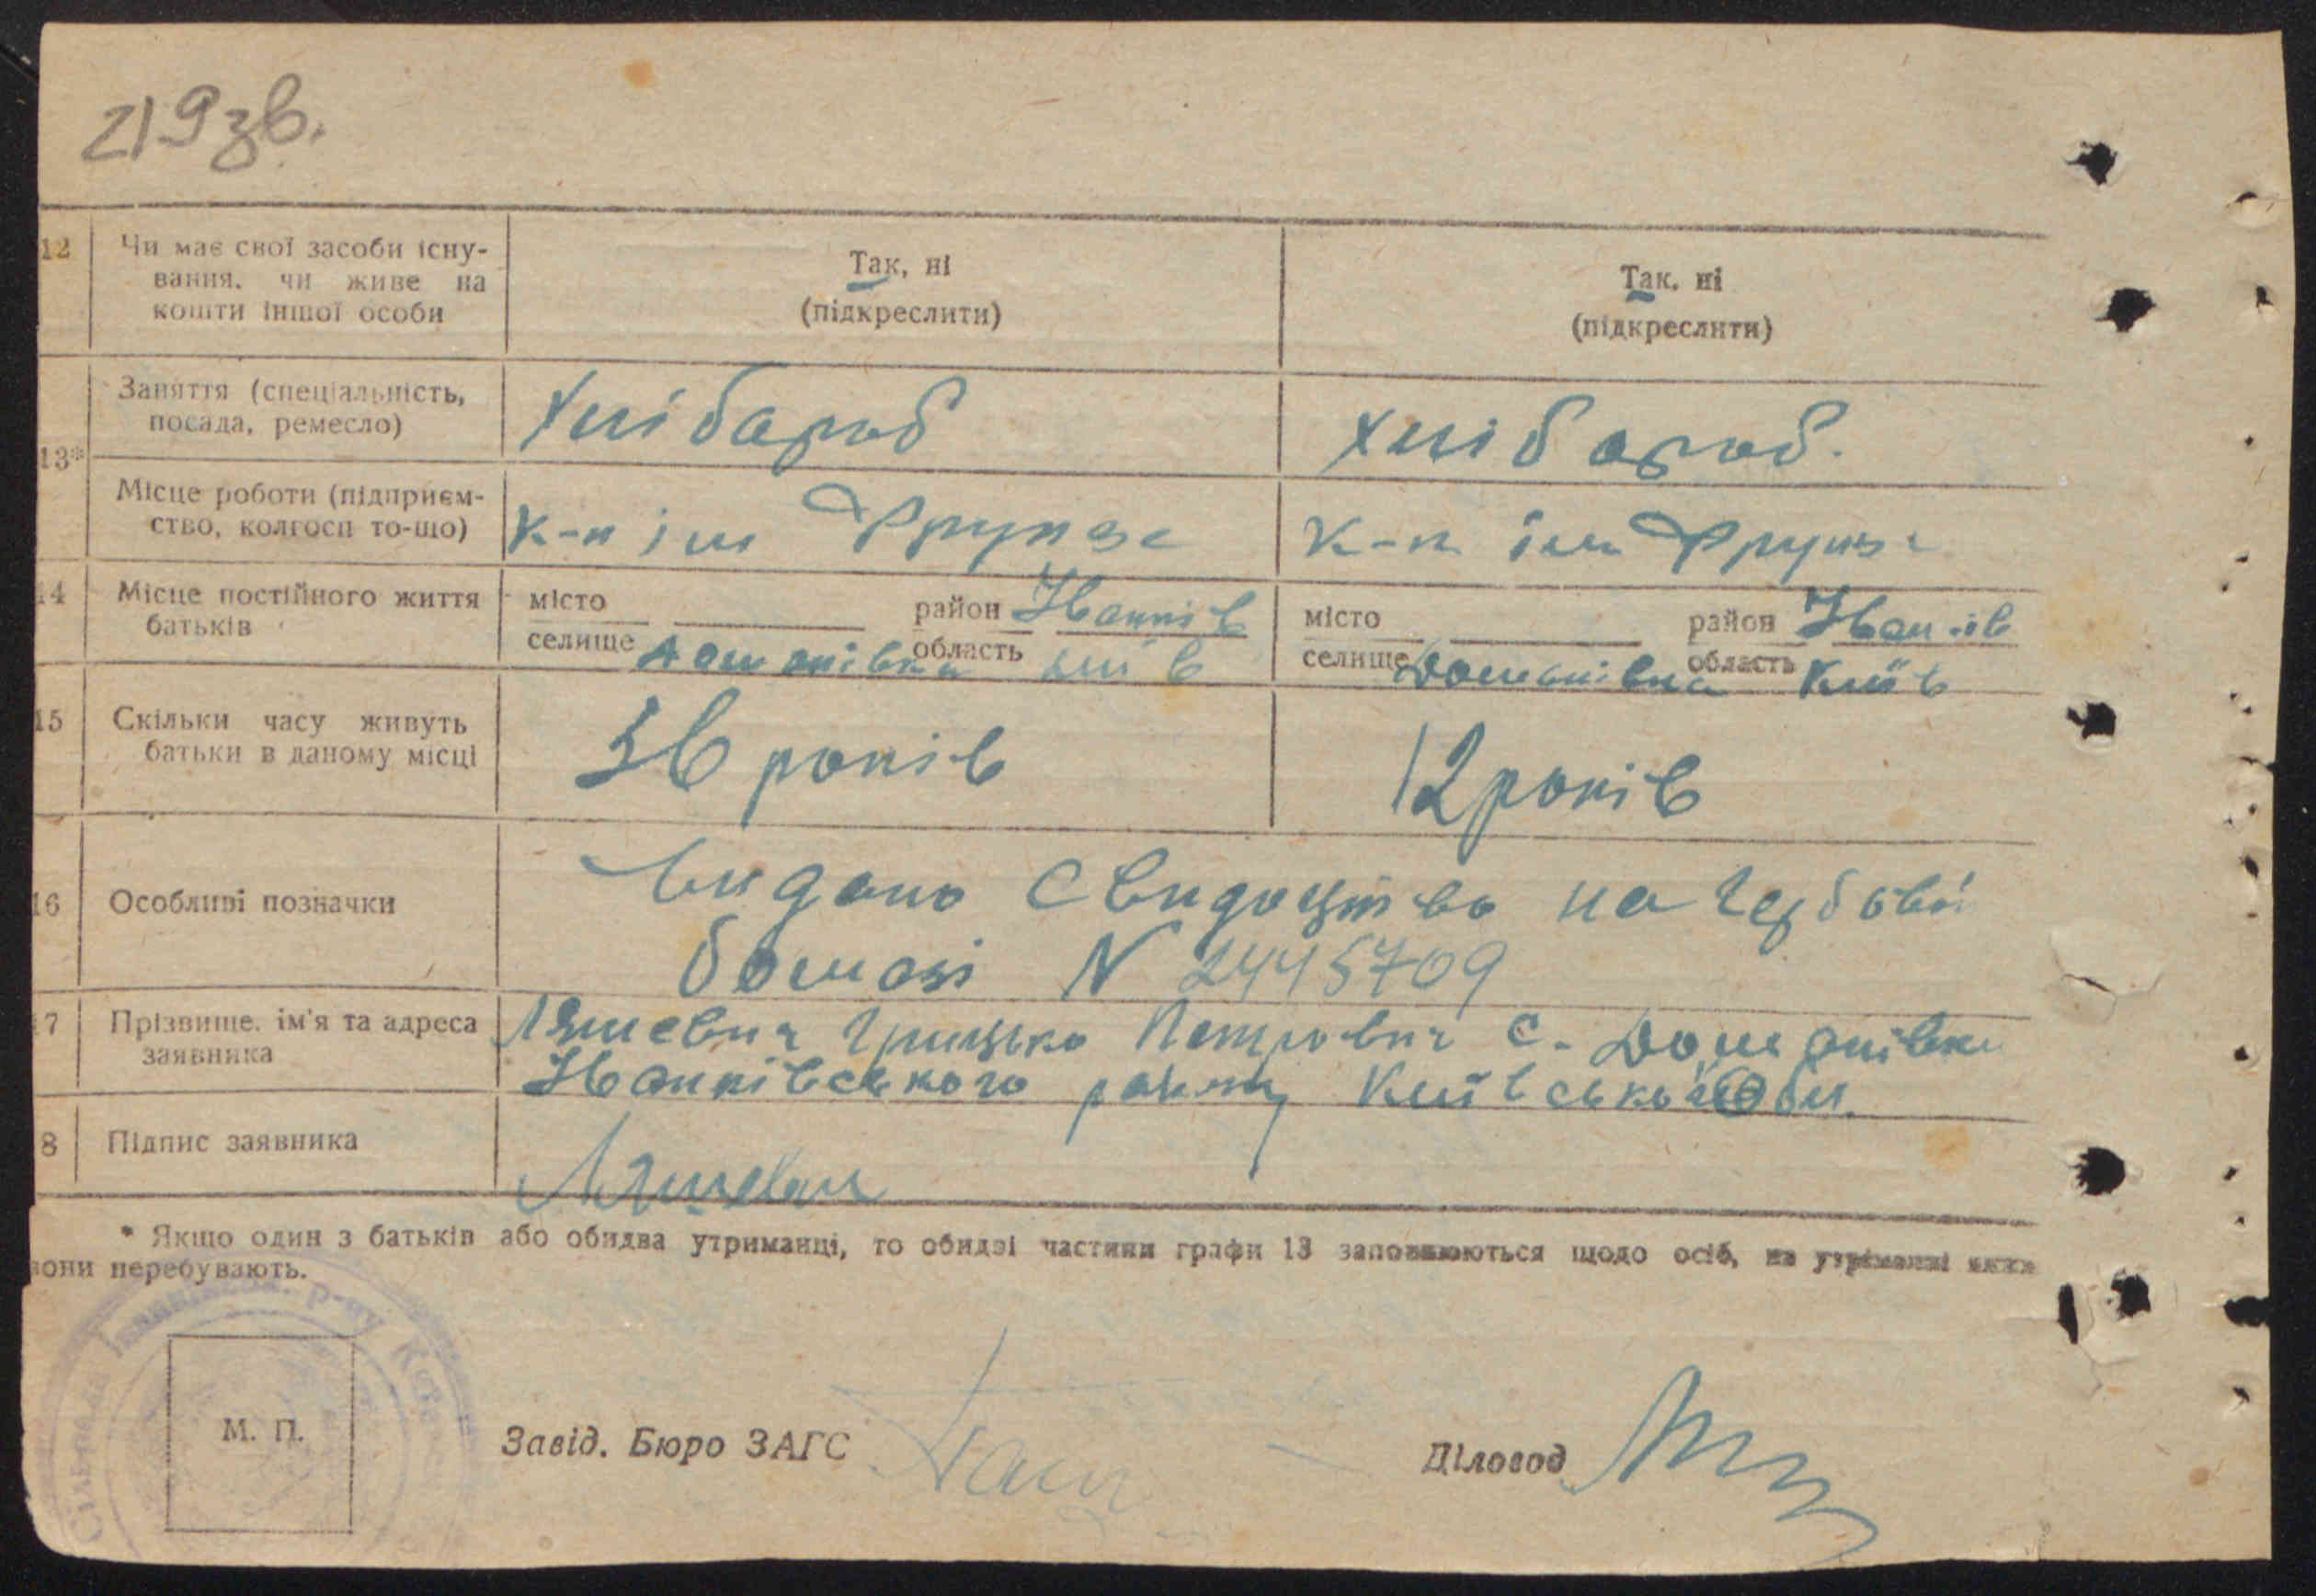 219зв.
12 Чи має свої засоби існу-
вання, чи живе на
кошти іншої особи
Так, ні
(підкреслити)
Так, ні
(підкреслити)
13*
Заняття (спеціальність,
посада, ремесло)
Хлібароб
хлібароб.
Місце роботи (підприєм-
ство, колгосп то-що)
к-п ім Фрунзе
к-п ім Фрунзе
14 Місце постійного життя
батьків
місто район Іванків
селище Доманівка область
місто район Іванків
селище Доманівка область Київ
15 Скільки часу живуть
батьки в даному місці
36 років
12 років
16 Особливі позначки
Видано Свидоцтво на гербовій
бомазі N 2445709
17 Прізвище, ім'я та адреса
заявника
Ляшевич Грицько Петрович с. Доманівка
Іванківського району Київської Обл.
8 Підпис заявника
Ляшевич
* Якщо один з батьків або обидва утриманці, то обидві частини графи 13 заповнюються щодо осіб, на утриманні яких
вони перебувають.
Сільрада р-ну
М. П.
Завід. Бюро ЗАГС
Діловод